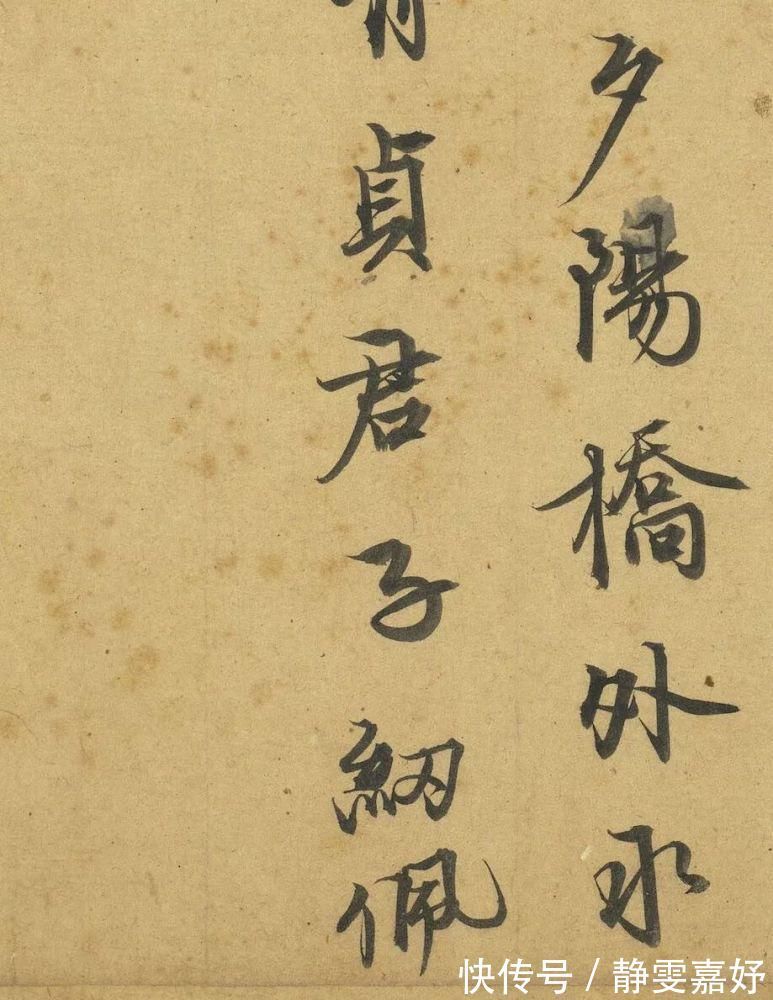 夕陽橋外水
貞君子紉佩
快传号 / 静雯嘉妤